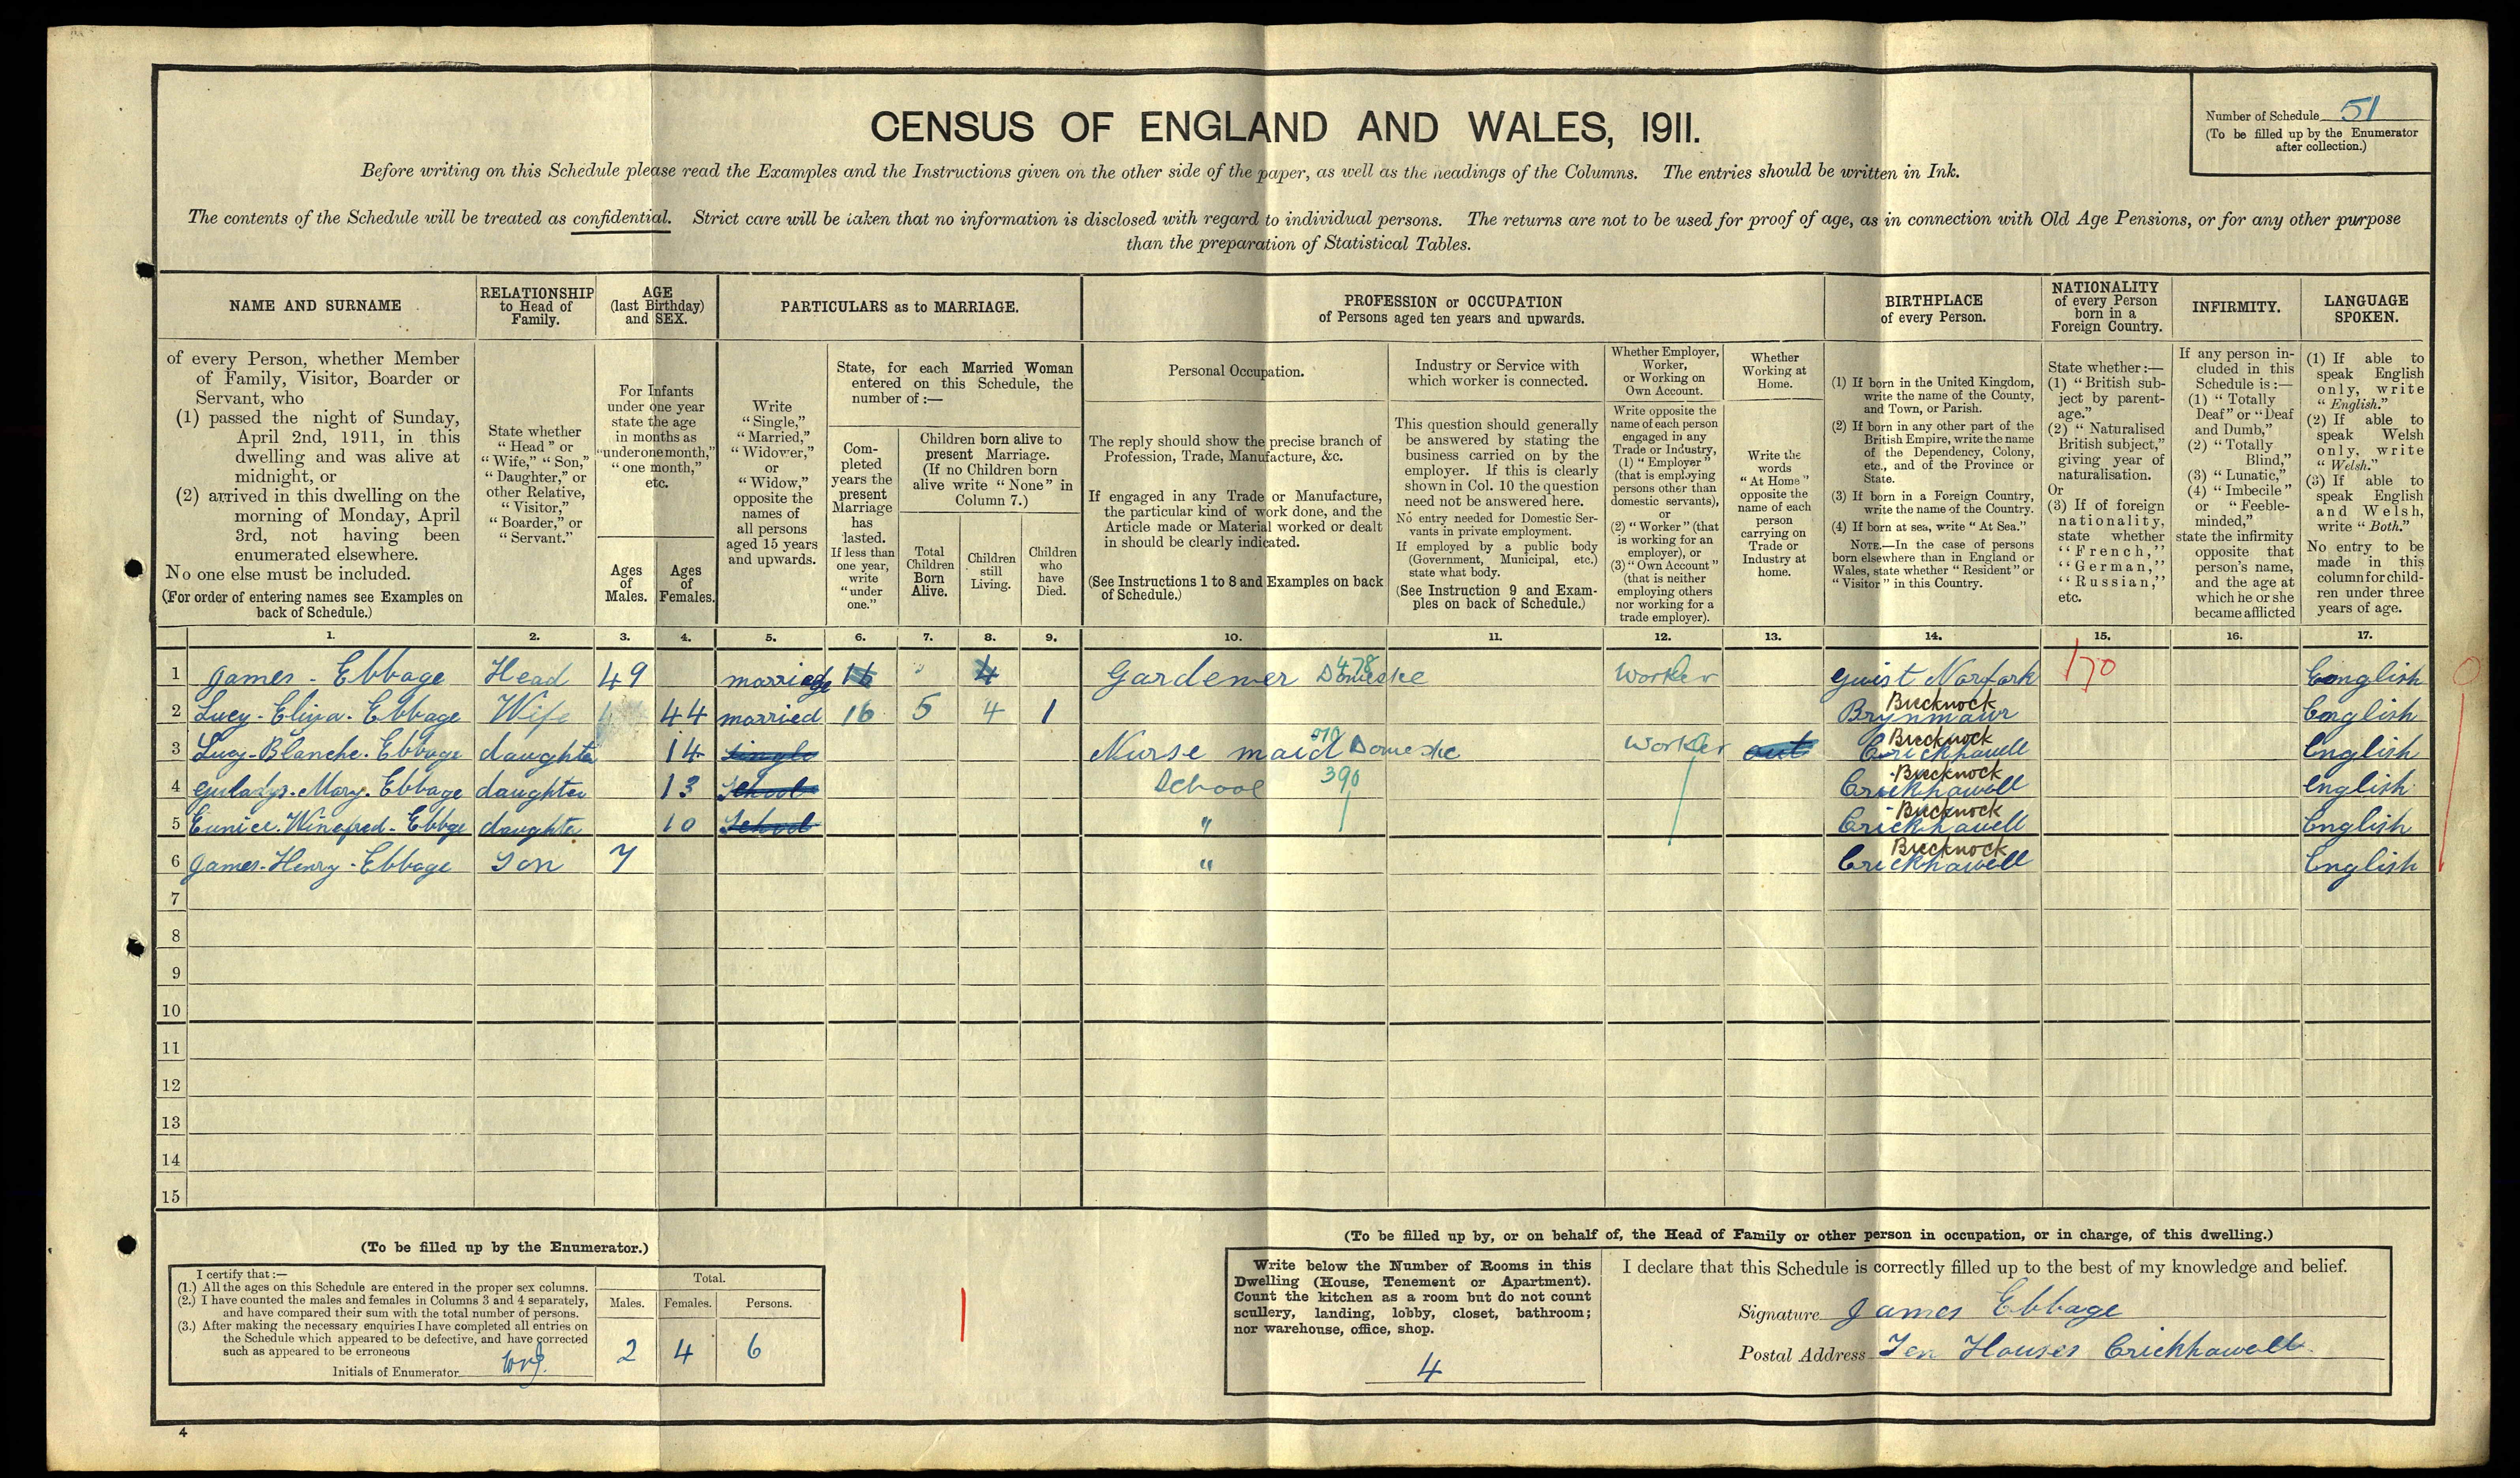 CENSUS OF ENGLAND AND WALES, 1911.
Number of Schedule 51
(To be filled up by the Enumerator
after collection.)
Before writing on this Schedule please read the Examples and the Instructions given on the other side of the paper, as well as the headings of the Columns. The entries should be written in Ink.
The contents of the Schedule will be treated as confidential. Strict care will be taken that no information is disclosed with regard to individual persons. The returns are not to be used for proof of age, as in connection with Old Age Pensions, or for any other purpose
than the preparation of Statistical Tables.
NAME AND SURNAME
of every Person, whether Member
of Family, Visitor, Boarder or
Servant, who
(1) passed the night of Sunday,
April 2nd, 1911, in this
dwelling and was alive at
midnight, or
(2) arrived in this dwelling on the
morning of Monday, April
3rd, not having been
enumerated elsewhere.
No one else must be included.
(For order of entering names see Examples on
back of Schedule.)
RELATIONSHIP
to Head of
Family.
State whether
"Head" or
"Wife," "Son,"
"Daughter," or
other Relative,
"Visitor,"
"Boarder," or
"Servant."
AGE
(last Birthday)
and SEX.
For Infants
under one year
state the age
in months as
"under one month,"
"one month,"
etc.
Ages
of
Males.
Ages
of
Females.
PARTICULARS as to MARRIAGE.
Write
"Single,"
"Married,"
"Widower,"
or
"Widow,"
opposite the
names of
all persons
aged 15 years
and upwards.
State, for each Married Woman
entered on this Schedule, the
number of:—
Com-
pleted
years the
present
Marriage
has
lasted.
If less than
one year,
write
"under
one."
Children born alive to
present Marriage.
(If no Children born
alive write "None" in
Column 7.)
Total
Children
Born
Alive.
Children
still
Living.
Children
who
have
Died.
PROFESSION or OCCUPATION
of Persons aged ten years and upwards.
Personal Occupation.
The reply should show the precise branch of
Profession, Trade, Manufacture, &c.
If engaged in any Trade or Manufacture,
the particular kind of work done, and the
Article made or Material worked or dealt
in should be clearly indicated.
(See Instructions 1 to 8 and Examples on back
of Schedule.)
Industry or Service with
which worker is connected.
This question should generally
be answered by stating the
business carried on by the
employer. If this is clearly
shown in Col. 10 the question
need not be answered here.
No entry needed for Domestic Ser-
vants in private employment.
If employed by a public body
(Government, Municipal, etc.)
state what body.
(See Instruction 9 and Exam-
ples on back of Schedule.)
Whether Employer,
Worker,
or Working on
Own Account.
Write opposite the
name of each person
engaged in any
Trade or Industry,
(1) "Employer"
(that is employing
persons other than
domestic servants),
or
(2) "Worker" (that
is working for an
employer), or
(3) "Own Account"
(that is neither
employing others
nor working for a
trade employer).
Whether
Working at
Home.
Write the
words
"At Home"
opposite the
name of each
person
carrying on
Trade or
Industry at
home.
BIRTHPLACE
of every Person.
(1) If born in the United Kingdom,
write the name of the County,
and Town, or Parish.
(2) If born in any other part of the
British Empire, write the name
of the Dependency, Colony,
etc., and of the Province or
State.
(3) If born in a Foreign Country,
write the name of the Country.
(4) If born at sea, write "At Sea."
NOTE.—In the case of persons
born elsewhere than in England or
Wales, state whether "Resident" or
"Visitor" in this Country.
NATIONALITY
of every Person
born in a
Foreign Country.
State whether:—
(1) "British sub-
ject by parent-
age."
(2) "Naturalised
British subject,"
giving year of
naturalisation.
Or
(3) If of foreign
nationality,
state whether
"French,"
"German,"
"Russian,"
etc.
INFIRMITY.
If any person in-
cluded in this
Schedule is:—
(1) "Totally
Deaf" or "Deaf
and Dumb,"
(2) "Totally
Blind,"
(3) "Lunatic,"
(4) "Imbecile"
or "Feeble-
minded,"
state the infirmity
opposite that
person's name,
and the age at
which he or she
became afflicted
LANGUAGE
SPOKEN.
(1) If able to
speak English
only, write
"English."
(2) If able to
speak Welsh
only, write
"Welsh."
(3) If able to
speak English
and Welsh,
write "Both."
No entry to be
made in this
column for child-
ren under three
years of age.
1. 2. 3. 4. 5. 6. 7. 8. 9. 10. 11. 12. 13. 14. 15. 16. 17.
1 James - Ebbage Head 49 married 16 4 Gardener Domestic 478 Worker Guist Norfork 170 English
2 Lucy - Eliza - Ebbage Wife 44 married 16 5 4 1 Brecknock Brynmawr English
3 Lucy - Blanche - Ebbage daughter 14 Single Nurse maid Domestic Worker out Brecknock Crickhowell English
4 Guladys - Mary - Ebbage daughter 13 School School 390 Brecknock Crickhowell English
5 Eunice. Winefred - Ebbge daughter 10 School " Brecknock Crickhowell English
6 James - Henry - Ebbage Son 7 " Brecknock Crickhowell English
7
8
9
10
11
12
13
14
15
(To be filled up by the Enumerator.)
I certify that:—
(1.) All the ages on this Schedule are entered in the proper sex columns.
(2.) I have counted the males and females in Columns 3 and 4 separately,
and have compared their sum with the total number of persons.
(3.) After making the necessary enquiries I have completed all entries on
the Schedule which appeared to be defective, and have corrected
such as appeared to be erroneous
Initials of Enumerator
Total.
Males. Females. Persons.
2 4 6
(To be filled up by, or on behalf of, the Head of Family or other person in occupation, or in charge, of this dwelling.)
Write below the Number of Rooms in this
Dwelling (House, Tenement or Apartment).
Count the kitchen as a room but do not count
scullery, landing, lobby, closet, bathroom;
nor warehouse, office, shop.
4
I declare that this Schedule is correctly filled up to the best of my knowledge and belief.
Signature James Ebbage
Postal Address Ten Houses Crickhowell
4